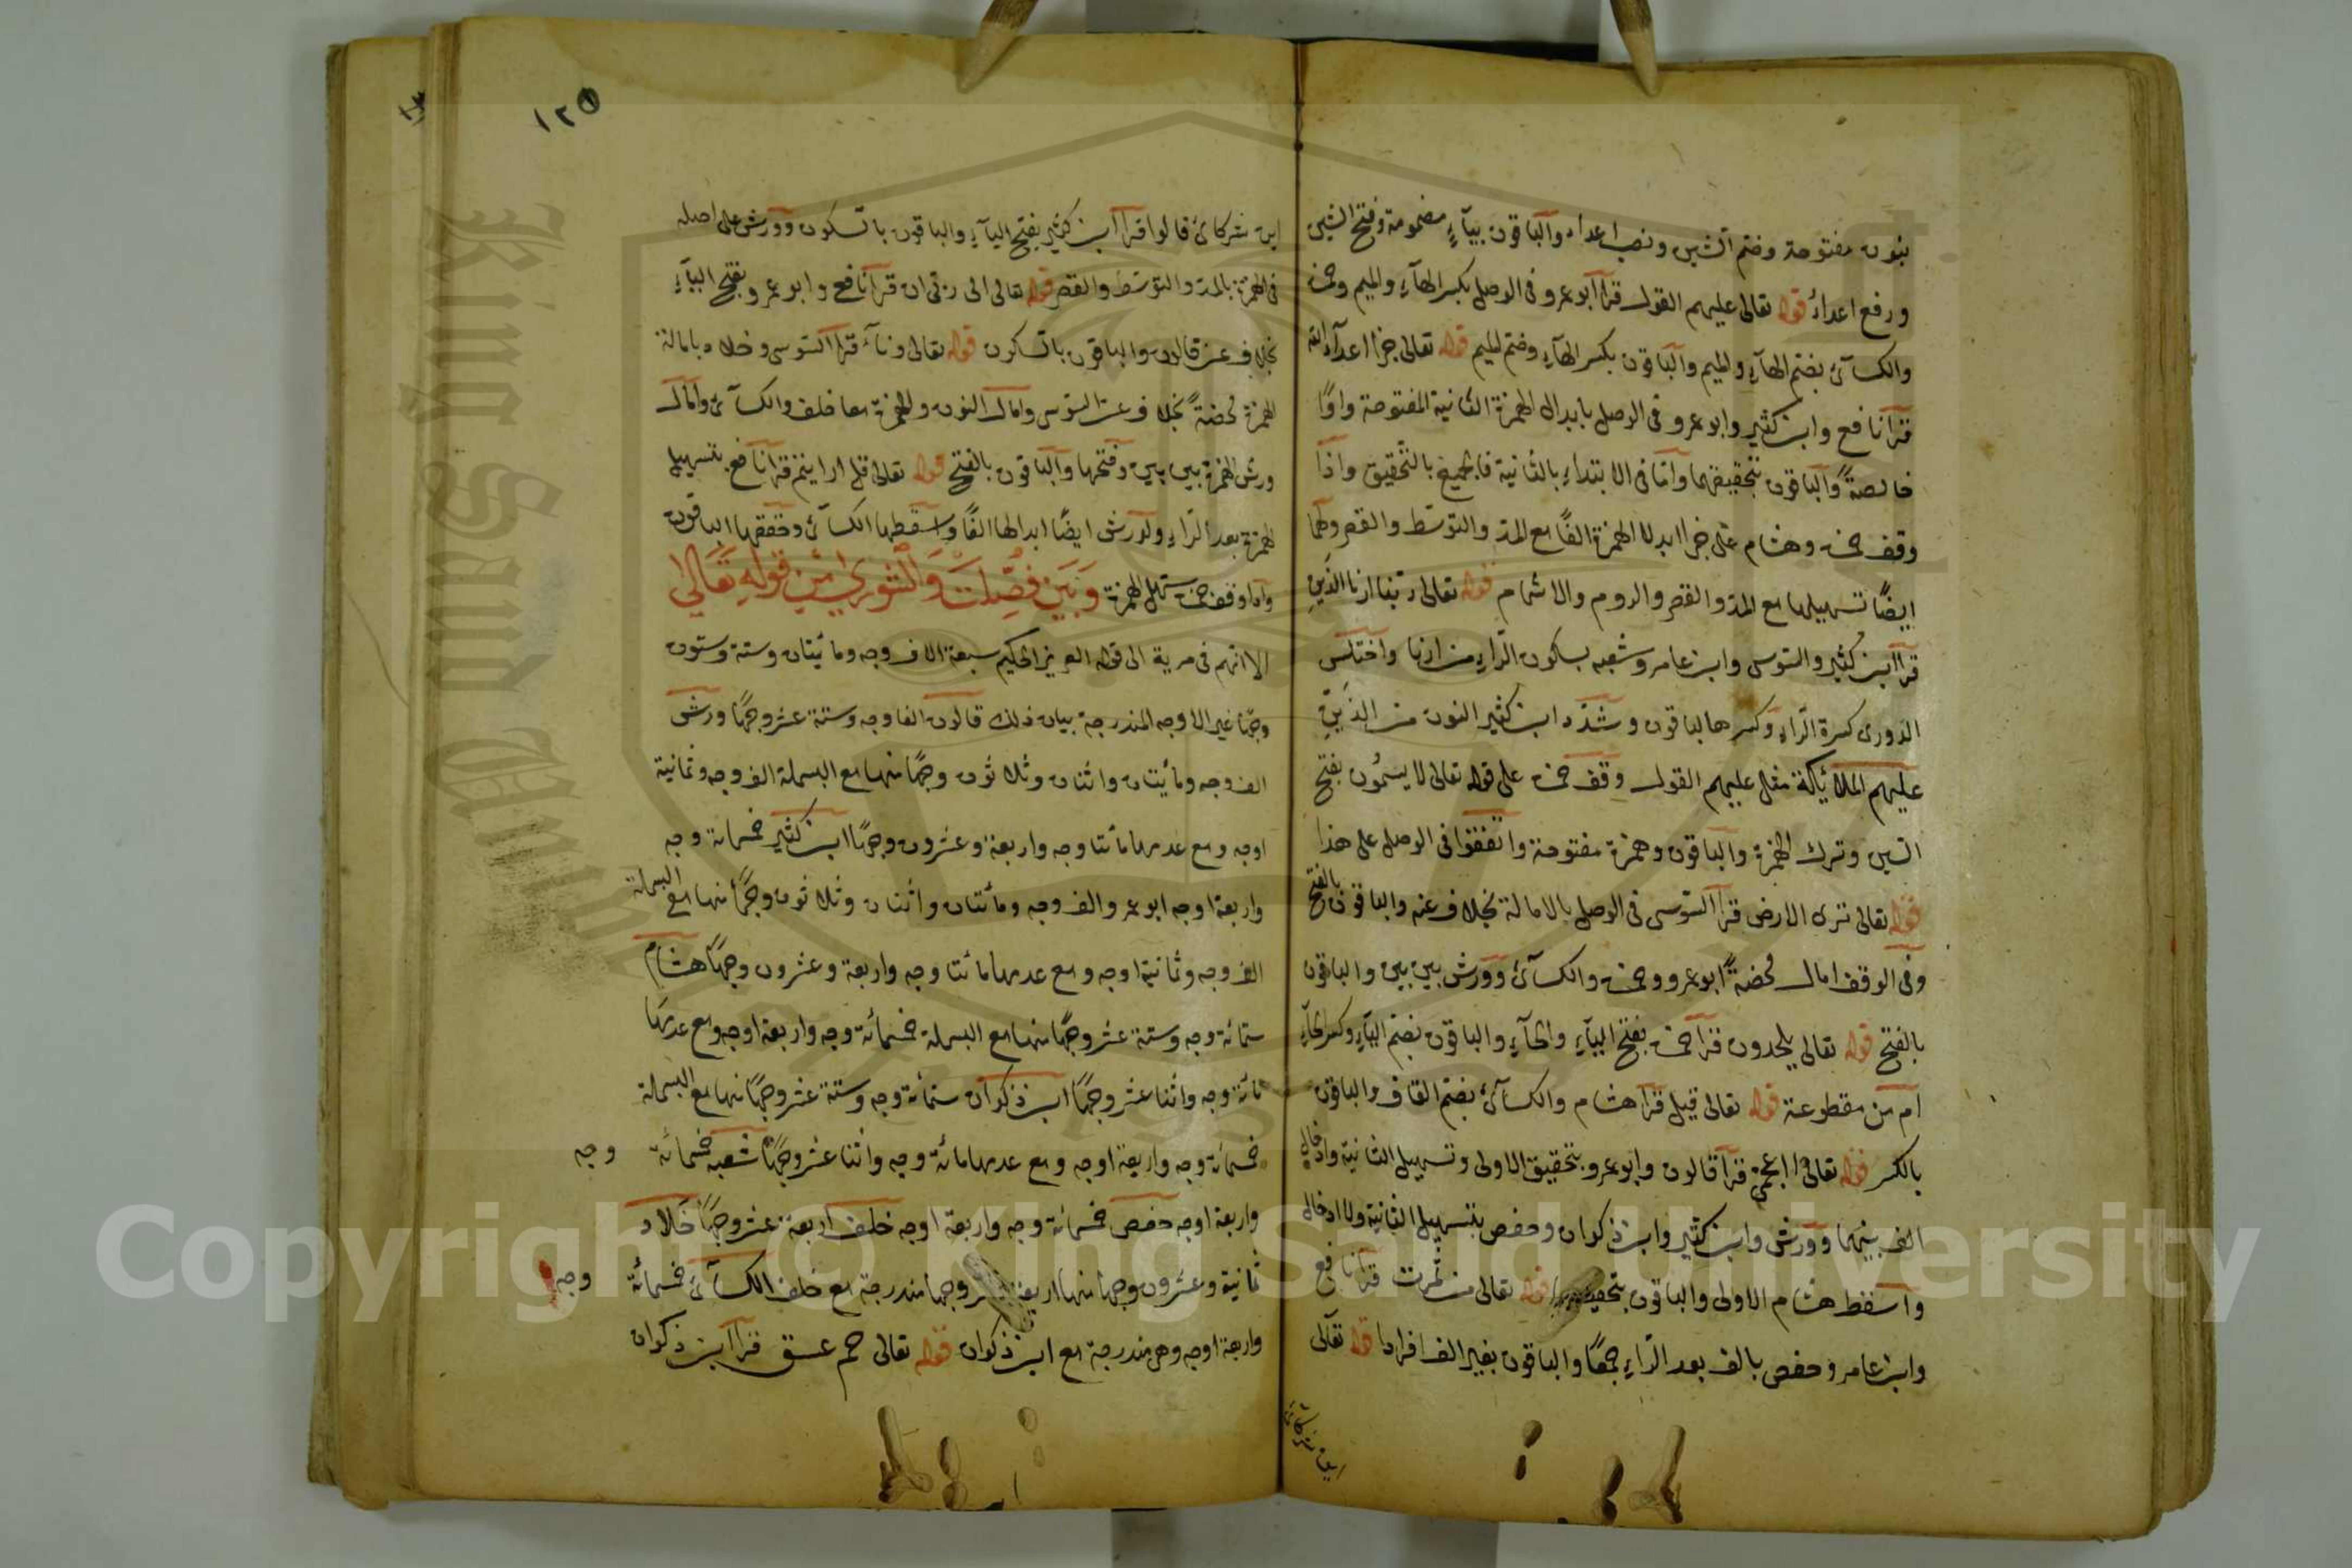 بنون مفتوحة وضم الشين ونصب اعداء والباقون بيآء مضمومة وفتح الشين
ورفع اعداء قوله تعالى عليهم القول قرأ ابو عمرو فى الوصل بكسر الهآء والميم وحمزة
والكسآئى بضم الهآء والميم والباقون بكسر الهآء وضم الميم قوله تعالى جزا اعدآء الله
قرأ نافع وابن كثير وابو عمرو فى الوصل بابدال الهمزة الثانية المفتوحة واوًا
خالصةً والباقون بتحقيقهما وامّا فى الابتداء بالثانية فالجميع بالتحقيق واذا
وقف حمزة وهشام على جزا ابدلا الهمزة الفًا مع المد والتوسط والقصر ولهما
ايضًا تسهيلها مع المد والقصر والروم والاشمام قوله تعالى ربنا ارنا الذين
قرأ ابن كثير والسوسى وابن عامر وشعبه بسكون الرّاء من ارنا واختلس
الدورى كسرة الرّاء وكسرها الباقون وشدّد ابن كثير النون من الذين
عليهم الملائكة مثل عليهم القول وقف حمزة على قوله تعالى لا يسئمون بفتح
السين وترك الهمزة والباقون وهمزة مفتوحة واتفقوا فى الوصل على هذا
قوله تعالى ترى الارض قرأ السّوسى فى الوصل بالامالة بخلاف عنه والباقون بالفتح
وفى الوقف امال محضةً ابو عمرو وحمزة والكسآئى وورش بين بين والباقون
بالفتح قوله تعالى يلحدون قرأ حمزة بفتح اليآء والحآء والباقون بضم اليآء وكسر الحآء
ام من مقطوعة قوله تعالى قيل قرأ هشام والكسآئى بضم القاف والباقون
بالكسر قوله تعالى ااعجمى قرأ قالون وابو عمرو بتحقيق الاولى وتسهيل الثانية وادخال
الف بينهما وورش وابن كثير وابن ذكوان وحفص بتسهيل الثانية ولا ادخال
واسقط هشام الاولى والباقون قوله تعالى من ثمرت قرأ نافع
وابن عامر وحفص بالف بعد الرّاء جمعًا والباقون بغير الف افرادا قوله تعالى
اين شركائى
١٢٥
اين شركائى قالوا قرأ ابن كثير بفتح اليآء والباقون بالسّكون وورش على اصله
فى الهمزة بالمد والتوسط والقصر قوله تعالى الى ربى ان قرأ نافع وابو عمرو بفتح اليآء
بخلاف عن قالون والباقون بالسكون قوله تعالى ونآء قرأ السّوسى وخلاد بامالة
الهمزة محضةً بخلاف عن السوسى وامال النون والهمزة معا خلف والكسآئى وامال
ورش الهمزة بين بين وفتحها والباقون بالفتح قوله تعالى قل ارايتم قرأ نافع بتسهيل
الهمزة بعد الرّاء ولورش ايضًا ابدالها الفًا واسقطها الكسآئى وحققها الباقون
واذا وقف حمزة سهل الهمزة وَبَيْن فُصِّلَتْ وَالشُّورى مِنْ قَوْلِهِ تَعَالَى
الا انهم فى مرية الى قوله العزيز الحكيم سبعة الاف وجه ومائيتان وستة وستون
وجهًا غير الاوجه المندرجة بيان ذلك قالون الفا وجه وستة عشر وجهًا ورش
الف وجه ومائيتان واثنان وثلاثون وجهًا منها مع البسملة الف وجه وثمانية
اوجه ومع عدمها مائتا وجه واربعة وعشرون وجهًا ابن كثير خمسمائة وجه
واربعة اوجه ابو عمرو الف وجه ومائتان واثنان وثلاثون وجهًا منها مع البسملة
الف وجه وثمانية اوجه ومع عدمها مائتا وجه واربعة وعشرون وجهًا هشام
ستمائة وجه وستة عشر وجهًا منها مع البسملة خمسمائة وجه واربعة اوجه ومع عدمها
مائة وجه واثنا عشر وجهًا ابن ذكوان ستمائة وجه وستة عشر وجهًا منها مع البسملة
خمسمائة وجه واربعة اوجه ومع عدمها مائة وجه واثنا عشر وجهًا شعبه خمسمائة وجه
واربعة اوجه حفص خمسمائة وجه واربعة اوجه خلف اربعة عشر وجهًا خلاد
ثمانية وعشرون وجها منها اربعة عشر وجها مندرجة مع خلف الكسآئى خمسمائة وجه
واربعة اوجه وهى مندرجة مع ابن ذكوان قوله تعالى حم عسق قرأ ابن ذكوان
King Saud University
Copyright © King Saud University